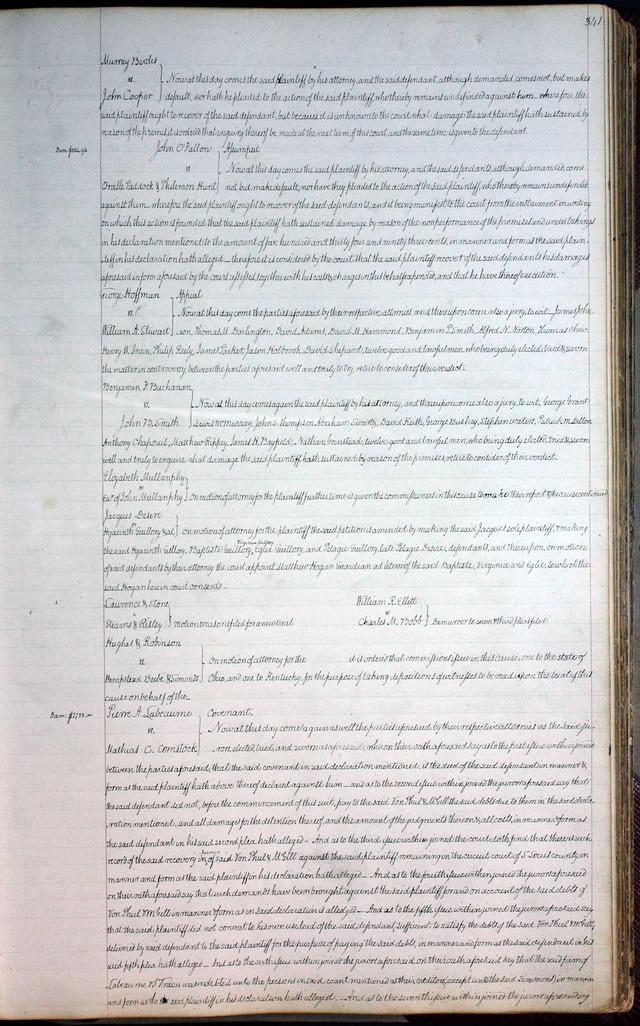 341
Murray Bevles
vs.
Now at this day comes the said plaintiff by his attorney, and the said defendant, although demanded, comes not, but makes
John Cooper
default, nor hath he pleaded to the action of the said plaintiff, who thereby remains undefended against him wherefore, the
said plaintiff ought to recover of the said defendant, but because it is unknown to the court what damages the said plaintiff hath sustained by
reason of the premises it is ordered that enquiry thereof be made at the next term of this court, and the same time is given to the defendant.
Dam: $534.93
John O'Fallon
Assumpsit
vs
Now at this day comes the said plaintiff by his attorney, and the said defendants although demanded, come
Orville Paddock & Philemon Hunt
not but make default, nor have they pleaded to the action of the said plaintiff, who thereby remains undefended
against them. wherefore the said plaintiff ought to recover of the said defendants, and it being manifest to the court from the instrument in writing
on which this action is founded that the said plaintiff hath sustained damage by reason of the nonperformance of the promises and undertakings
in his declaration mentioned to the amount of five hundred and thirty four and ninety three cents, in manner and form as the said plain-
tiff in his declaration hath alleged — therefore it is considered by the court that the said plaintiff recover of the said defendants his damages
aforesaid in form aforesaid by the court assessed, together with his costs & charges in this behalf expended, and that he have thereof execution.
George Hoffman
Appeal
vs.
Now at this day come the parties aforesaid by their respective attornies, and thereupon come also a jury, to wit, James John-
William A. Stewart
son, Thomas M. Darlington, David Adams, David M. Hammond, Benjamin P. Smith, Alfred N. Norton, Thomas
Henry W. Irwin, Philip Reily, James Parker, Jason Holbrook, David Shepard, twelve good and lawful men, who being duly elected, tried & sworn
the matter in controversy between the parties aforesaid well and truly to try, retire to consider of their verdict.
Benjamin F. Buchanan
vs.
Now at this day comes again the said plaintiff by his attorney, and thereupon come also a jury, to wit, George Grant
John B. Smith
Lewis McMurray, John S. Thompson, Abraham David Keith, George Bushey, Stephen Patrick M. Dillon
Anthony Matthew Rippey, James H. Nathan twelve good and lawful men, who being duly elected, tried & sworn
well and truly to enquire what damage the said plaintiff hath sustained by reason of the premises, retire to consider of their verdict.
Elizabeth Mullanphy
vs
Exr of John Mullanphy
on motion of attorney for the plaintiff further time is given the commissioners in this cause to make their report & the cause continued
Jacques Desire
vs
Hyacinth Guillory & al
on motion of attorney for the plaintiff the said petition is amended by making the said Jacques sole plaintiff, & making
Virginia Guillory
the said Hyacinth Guillory, Baptiste Guillory, Eglie Guillory, and Pelagie Guillory late Pelagie Desire, defendants, and thereupon, on motion
of said defendants by their attorney the court appoint Matthew Hogan Guardian ad litem of the said Baptiste, Virginia and Eglie, to which the
said Hogan here in court consents.—
Lawrence & Stone
vs
Stearns & Risley
motion & reasons filed for a new trial
William R. Ellett
vs
Charles M. Bobb
Demurrer to second & third pleas filed
Hughes & Robinson
vs.
On motion of attorney for the it is ordered that commissions issue in this cause, one to the state of
Hempstead Beebe & Simonds
Ohio, and one to Kentucky, for the purpose of taking depositions of witnesses to be read upon the trial of this
cause on behalf of the
Pierre A. Labeaume
Covenant.
vs.
Now at this day come again as well the parties aforesaid by their respective attornies as the said ju-
Mathias C. Comstock
rors, elected, tried, and sworn as aforesaid, who on their oath aforesaid say as to the first issue within joined
between the parties aforesaid, that the said covenant in said declaration mentioned, is the deed of the said defendant in manner &
form as the said plaintiff hath above thereof declared against him — and as to the second issue within joined the jurors aforesaid say that
the said defendant did not, before the commencement of this suit, pay to the said Von Phul & McGill the said debts due to them in the said decla-
ration mentioned, and all damages for the detention thereof, and the amount of the judgments thereon & all costs, in manner & form as
the said defendant in his said second plea hath alleged — And as to the third issue within joined the court doth find that there is such
record of the said recovery in favor of said Von Phul & McGill against the said plaintiff remaining in the circuit court of St Louis county, in
manner and form as the said plaintiff in his declaration hath alleged — And as to the fourth issue within joined the jurors aforesaid
on their oath aforesaid say that such demands have been brought against the said plaintiff for and on account of the said debts of
Von Phul & McGill in manner & form as in said declaration is alledged — And as to the fifth issue within joined the jurors aforesaid say
that the said plaintiff did not convert to his own use lead of the said defendant, sufficient to satisfy the debts of the said Von Phul & McGill,
delivered by said defendant to the said plaintiff for the purpose of paying the said debts, in manner and form as the said defendant in his
said fifth plea hath alleged — And as to the sixth issue within joined the jurors aforesaid on their oath aforesaid say that the said firm of
Labeaume & Train was indebted unto the persons in said count mentioned as their creditors, (except unto the said Simmons), in manner
and form as the said plaintiff in his declaration hath alleged — And as to the seventh issue within joined the jurors aforesaid say